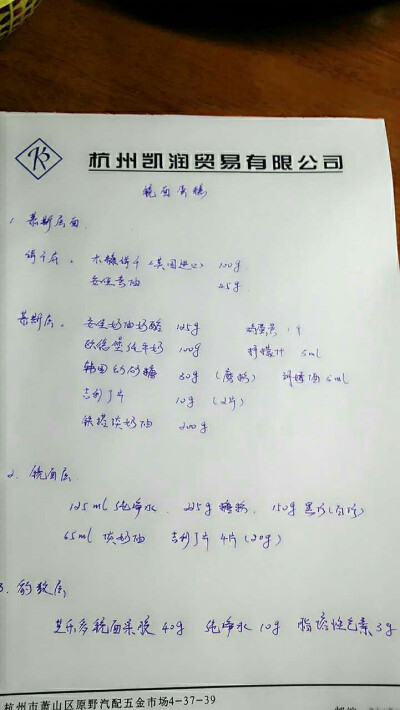 杭州凯润贸易有限公司
镜面蛋糕
1. 慕斯层面
饼干层。 木糖饼干（英国进口） 100g
安佳黄油 45g
慕斯层。 安佳奶油奶酪 125g 鸡蛋黄 1个
欧德堡纯牛奶 100g 柠檬汁 5ml
韩国幼砂糖 30g （磨粉） 调酒 5ml
吉利丁片 10g （2片）
铁塔淡奶油 200g
2. 镜面层
125ml 纯净水、225g 糖粉、150g 黑巧（白巧）
65ml 淡奶油 吉利丁片 4片（20g）
3. 豹纹层
芝乐多镜面果胶 40g 纯净水 10g 脂溶性色素 3g
杭州市萧山区原野汽配五金市场4-37-39